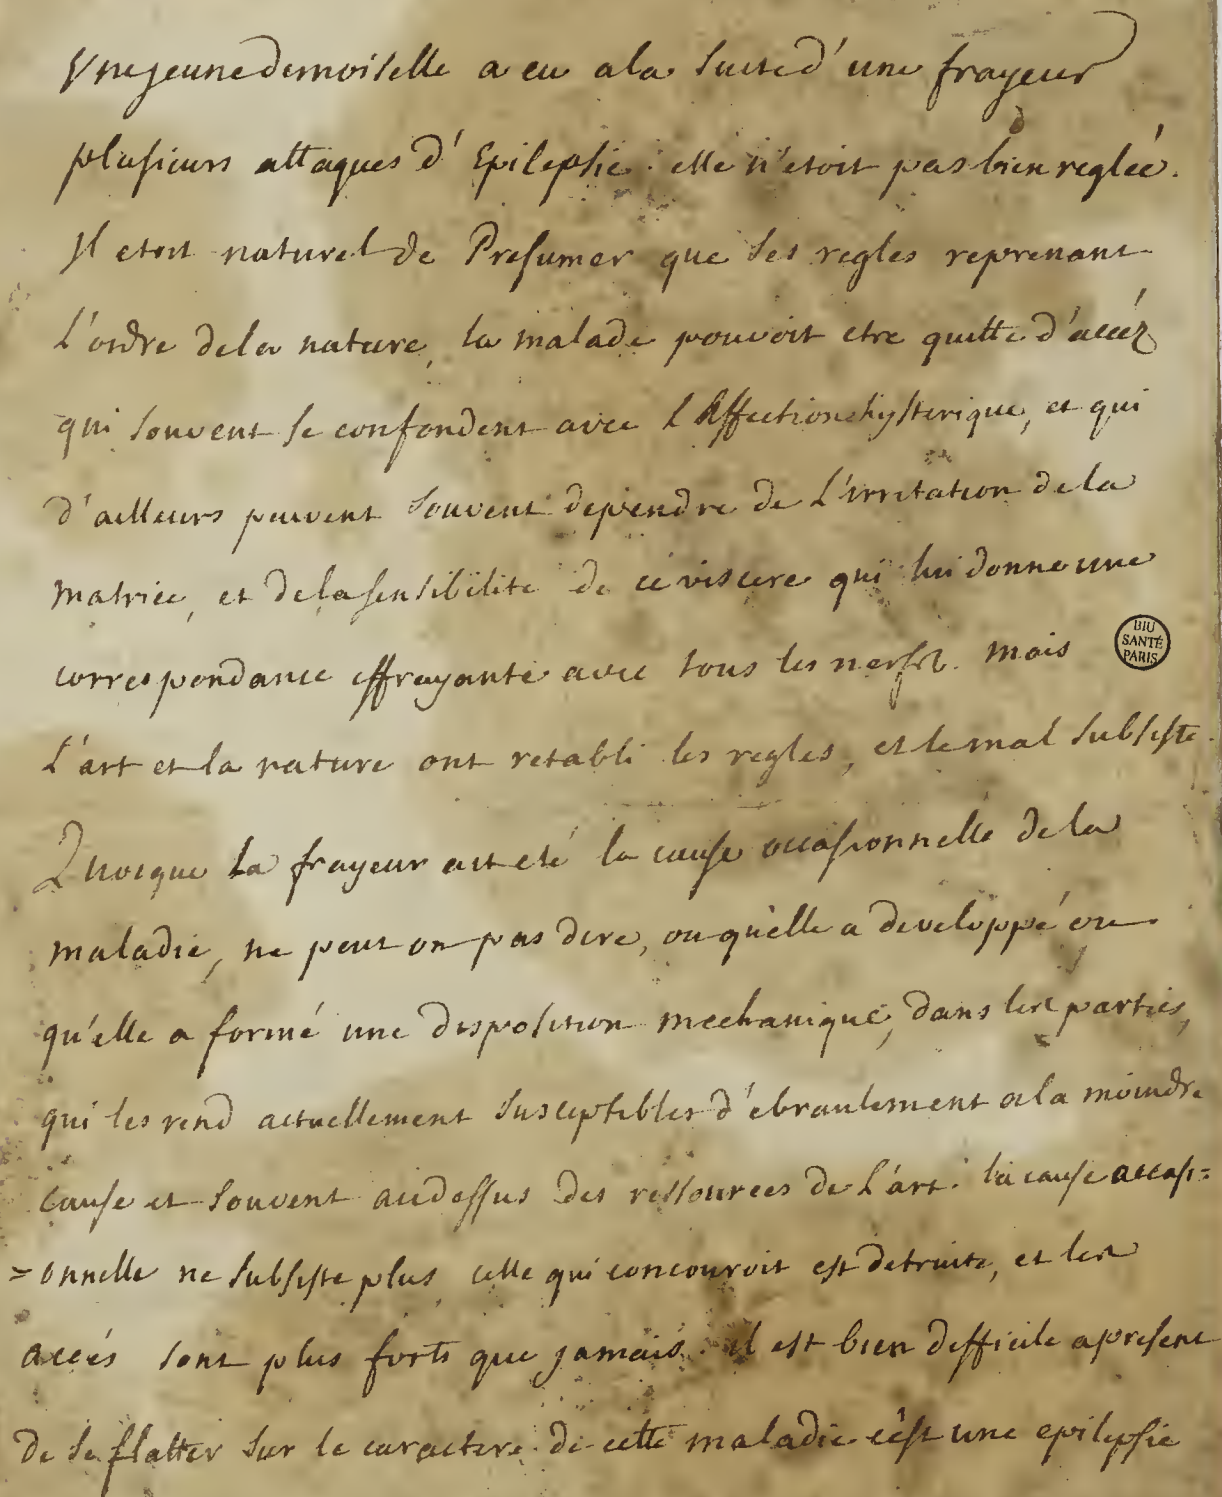 Une jeune demoiselle a eu a la suite d'une frayeur
plusieurs attaques d'Epilepsie : elle n'etoit pas bien reglée.
Il etoit naturel de Presumer que ses regles reprenant
L'ordre de la nature, la malade pouvoit etre quitte d'accéz
qui souvent se confondent avec L'Affection hysterique, et qui
d'ailleurs peuvent souvent dependre de L'irritation de la
matrice, et de la sensibilité de ce viscere qui lui donne une
correspondance effrayante avec tous les nerfs. mais
L'art et la nature ont retabli les regles, et le mal subsiste.
Quoique la frayeur ait eté la cause occasionnelle de la
maladie, ne peut on pas dire, ou qu'elle a developpé ou
qu'elle a formé une disposition mechanique, dans les parties,
qui les rend actuellement susceptibles d'ebranlement a la moindre
cause et souvent audessus des ressources de L'art. la cause occasi=
=onnelle ne subsiste plus, celle qui concouroit est detruite, et les
accés sont plus forts que jamais. il est bien difficile apresent
de se flatter sur le caractere de cette maladie c'est une epilepsie
BIU
SANTÉ
PARIS